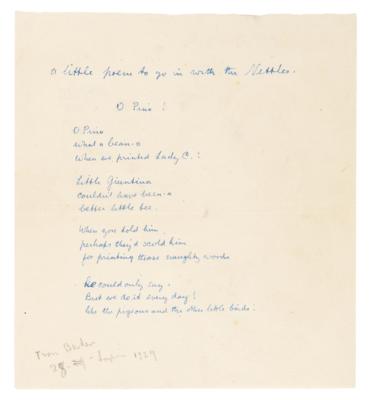 a little poem to go in with the Nettles.
O Pino!
O Pino
what a bean-o
when we printed Lady C.!
Little Giuntina
couldn't have been-a
better little bee.
When you told him
perhaps they'd scold him
for printing those naughty words
he could only say:
But we do it every day!
like the pigeons and the other little birds.
1929